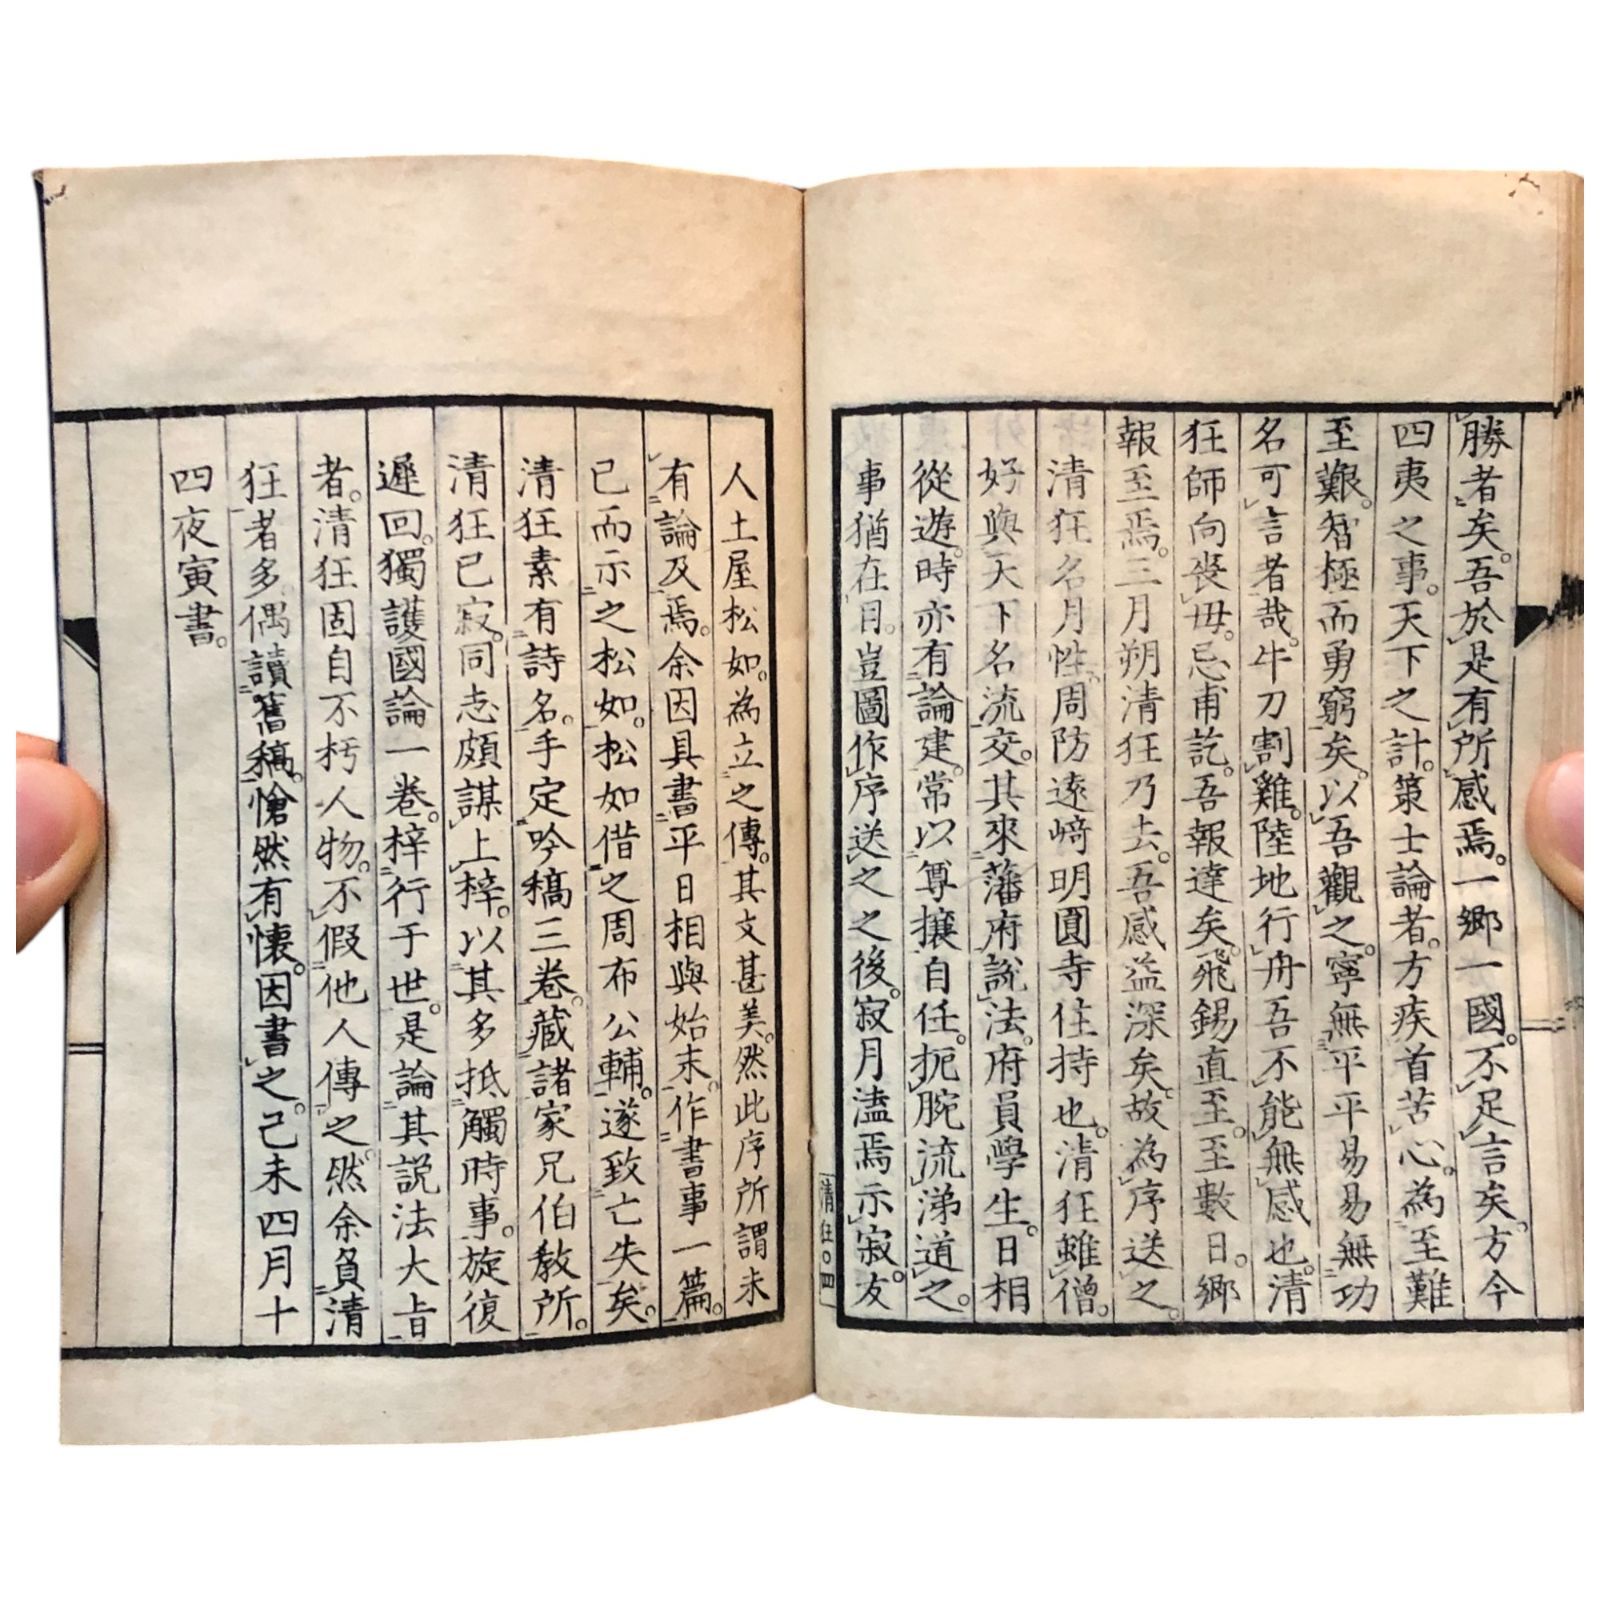 勝者矣。吾於是有所感焉。一鄉一國。不足言矣。方今
四夷之事。天下之計。策士論者。方疾首苦心。為至難
至艱。智極而勇窮矣。以吾觀之。寧無平平易易無功
名可言者哉。牛刀割雞。陸地行舟。吾不能無感也。清
狂師向喪母。忌甫訖。吾報達矣。飛錫直至。至數日。鄉
報至焉。三月朔清狂乃去。吾感益深矣。故為序送之。
清狂名月性。周防遠﨑明圓寺住持也。清狂雖僧。
好與天下名流交。其來藩府說法。府員學生。日相
從遊。時亦有論建。常以尊攘自任。扼腕流涕道之。
事猶在目。豈圖作序送之之後。寂月溘焉示寂。友
清狂。四
人土屋松如。為立之傳。其文甚美。然此序所謂未
有論及焉。余因具書平日相與始末。作書事一篇。
已而示之松如。松如借之周布公輔。遂致亡失矣。
清狂素有詩名。手定吟稿三卷。藏諸家兄伯教所。
清狂已寂。同志頗謀上梓。以其多抵觸時事。旋復
遲回。獨護國論一卷。梓行于世。是論其説法大旨
者。清狂固自不朽人物。不假他人傳之。然余負清
狂者多。偶讀舊稿。愴然有懷。因書之。己未四月十
四夜寅書。